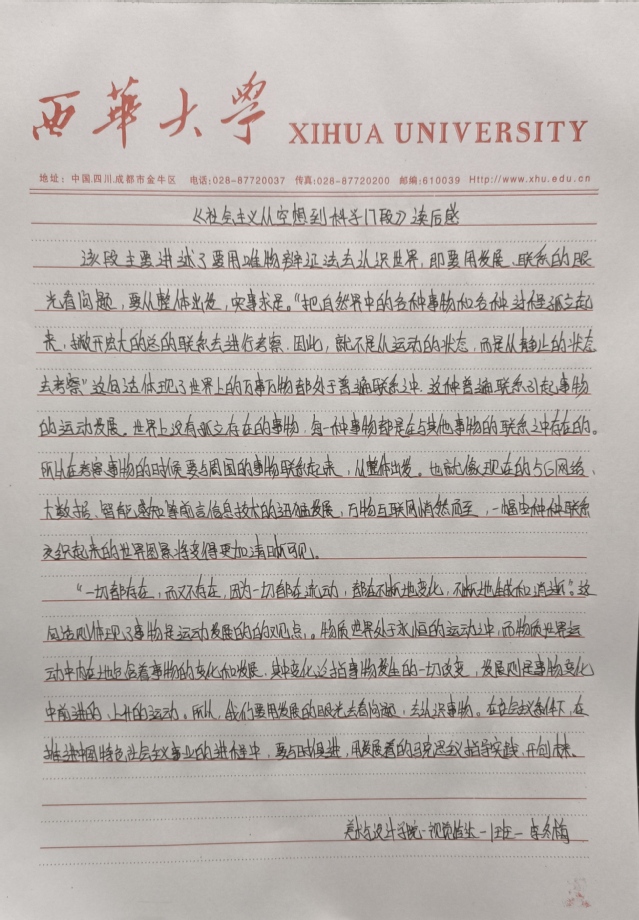 西華大學 XIHUA UNIVERSITY
地址：中国.四川.成都市金牛区 电话:028-87720037 传真:028-87720200 邮编:610039 Http://www.xhu.edu.cn
《社会主义从空想到科学门段》读后感
该段主要讲述了要用唯物辩证法去认识世界，即要用发展、联系的眼
光看问题，要从整体出发，实事求是。“把自然界中的各种事物和各种过程孤立起
来，撇开宏大的总的联系去进行考察，因此，就不是从运动的状态，而是从静止的状态
去考察”这句话体现了世界上的万事万物都处于普遍联系之中，这种普遍联系引起事物
的运动发展。世界上没有孤立存在的事物，每一种事物都是在与其他事物的联系之中存在的。
所以在考察事物的时候要与周围的事物联系起来，从整体出发。也就像现在的5G网络、
大数据、智能感知等前言信息技术的迅猛发展，万物互联网悄然而至，一幅由种种联系
交织起来的世界图景将变得更加清晰可见。
“一切都存在，而又不存在，因为一切都在流动，都在不断地变化，不断地生成和消逝”。这
句话则体现了事物是运动发展的的观点，。物质世界处于永恒的运动之中，而物质世界运
动中内在地包含着事物的变化和发展，其中变化泛指事物发生的一切改变，发展则是事物变化
中前进的、上升的运动。所以，我们要用发展的眼光去看问题，去认识事物。在 条件下，在
推进中国特色社会主义事业的进程中，要与时俱进，用发展着的马克思主义指导实践、开创未来。
美术与设计学院-视觉 -1班-李冬梅